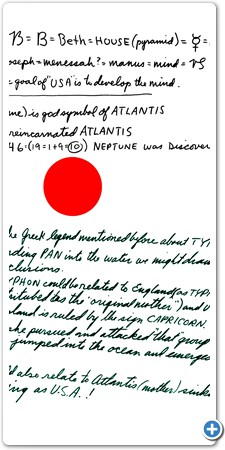 B = B = Beth = HOUSE (pyramid) = ☿ =
oseph = menessah? = manus = mind = ♑
= goal of "USA" is to develop the mind.
me) is god symbol of ATLANTIS
reincarnated ATLANTIS
46: (19=1+9=10) NEPTUNE was discover
he Greek legend mentioned before about TY
ding PAN into the water we might draw
clusions.
PHON could be related to England (as TYP
tituted as the "original mother") and U
land is ruled by the sign CAPRICORN.
he pursued and attacked that group
jumped into the ocean and emerge
d also relate to Atlantis (mother) sink
ng as U.S.A..!